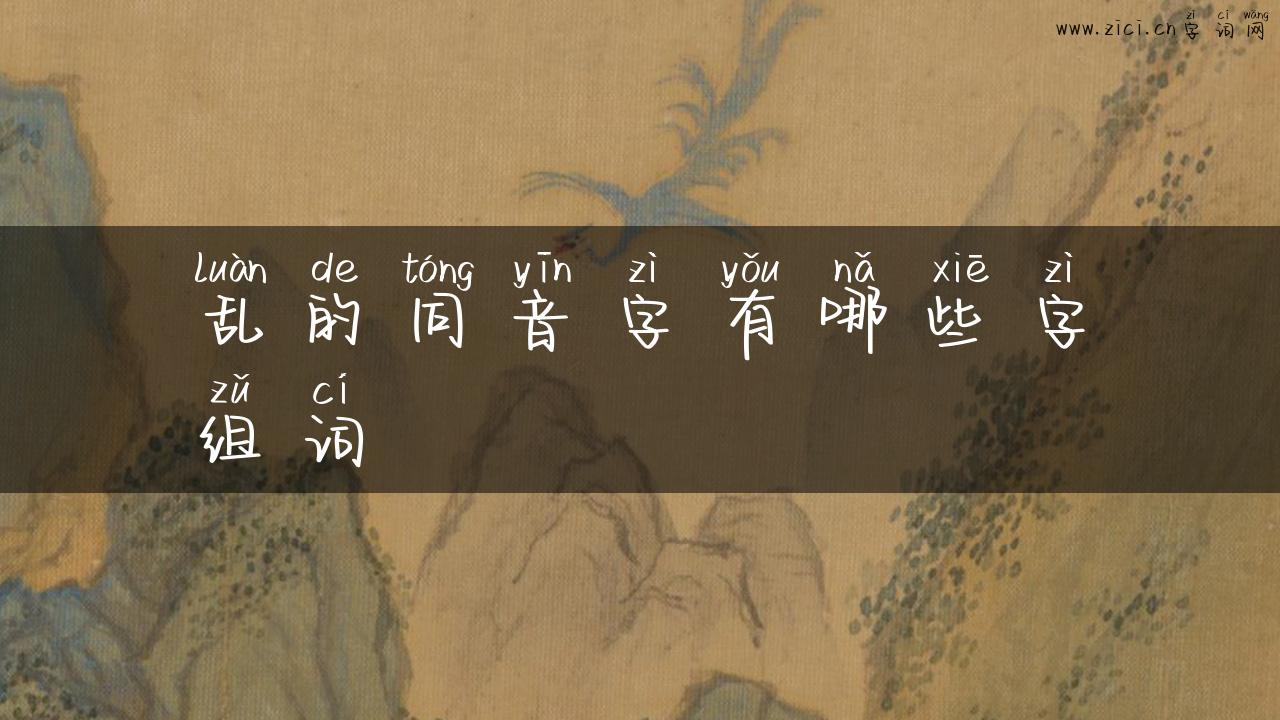 zì cí wǎng
www.zici.cn字词网
luàn de tóng yīn zì yǒu nǎ xiē zì
乱的同音字有哪些字
zǔ cí
组词